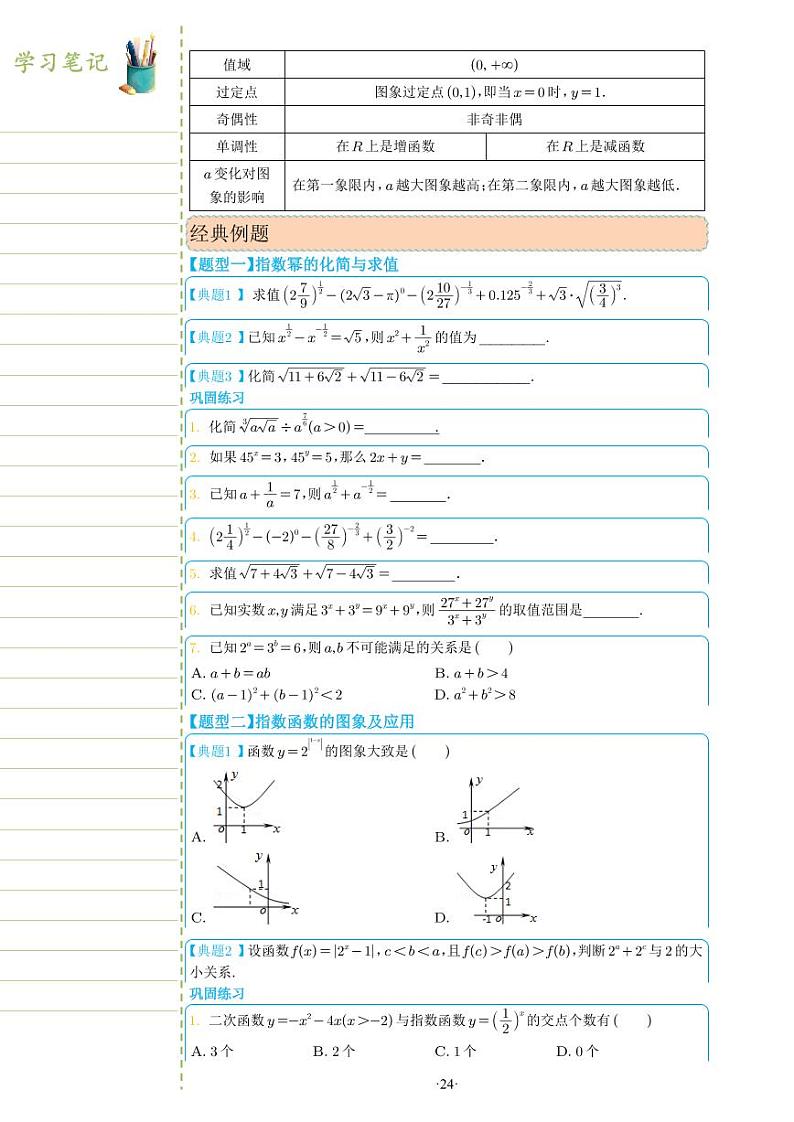 学习笔记
值域 (0, +∞)
过定点 图象过定点 (0,1),即当 x=0 时, y=1.
奇偶性 非奇非偶
单调性 在 R 上是增函数 在 R 上是减函数
a 变化对图
象的影响 在第一象限内, a 越大图象越高;在第二象限内, a 越大图象越低.
经典例题
【题型一】指数幂的化简与求值
【典题1 】 求值 (2 7/9)^{1/2} − (2√3 − π)^0 − (2 10/27)^{−1/3} + 0.125^{−2/3} + √3 · √((3/4)^3).
【典题2 】已知 x^{1/2} − x^{−1/2} = √5 ,则 x² + 1/x² 的值为 _________.
【典题3 】化简 √(11+6√2) + √(11−6√2) = ____________.
巩固练习
1. 化简 ∛(a√a) ÷ a^{7/6} (a>0) = __________.
2. 如果 45^x = 3, 45^y = 5,那么 2x + y = ________.
3. 已知 a + 1/a = 7,则 a^{1/2} + a^{−1/2} = ________.
4. (2 1/4)^{1/2} − (−2)^0 − (27/8)^{−2/3} + (3/2)^{−2} = _________.
5. 求值 √(7+4√3) + √(7−4√3) = _________.
6. 已知实数 x,y 满足 3^x + 3^y = 9^x + 9^y,则 (27^x + 27^y)/(3^x + 3^y) 的取值范围是________.
7. 已知 2^a = 3^b = 6,则 a,b 不可能满足的关系是 ( )
A. a+b=ab B. a+b>4
C. (a−1)²+(b−1)²<2 D. a²+b²>8
【题型二】指数函数的图象及应用
【典题1 】函数 y=2^{|1−x|} 的图象大致是 ( )
A. y 2 1 o 1 x B. y 1 o 1 x
C. y 1 o x D. y 2 1 -1 o x
【典题2 】设函数 f(x)=|2^x−1|, c<b<a,且 f(c)>f(a)>f(b),判断 2^a+2^c 与 2 的大
小关系.
巩固练习
1. 二次函数 y=−x²−4x(x>−2) 与指数函数 y=(1/2)^x 的交点个数有 ( )
A. 3 个 B. 2 个 C. 1 个 D. 0 个
·24·